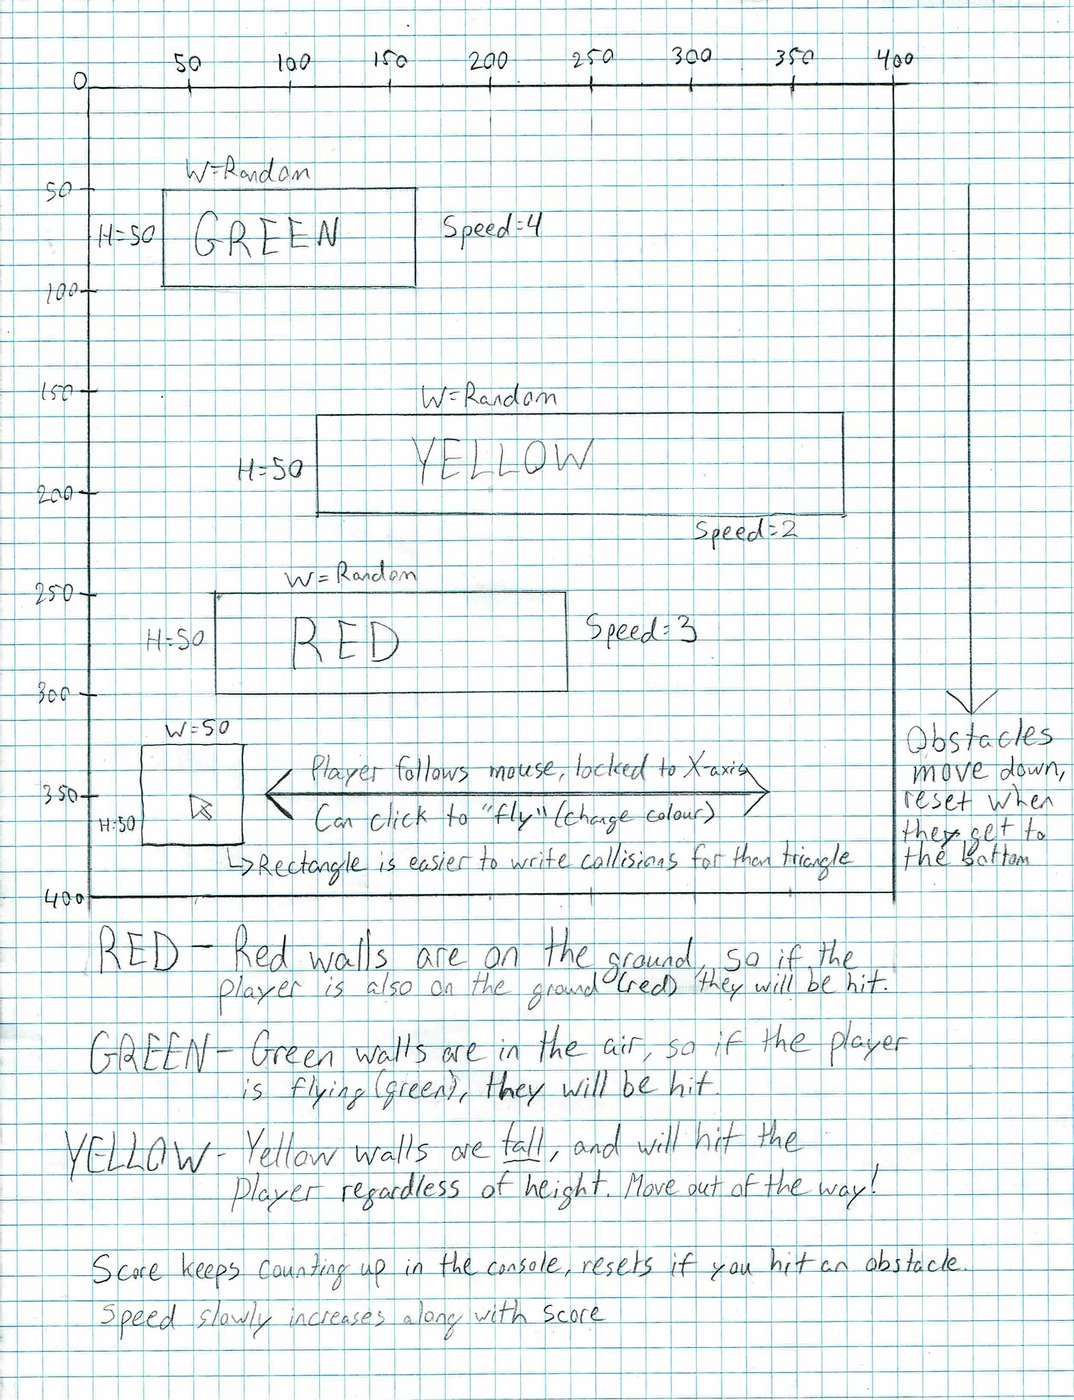 50 100 150 200 250 300 350 400
0
W=Random
50
H=50 GREEN Speed=4
100
150
W=Random
YELLOW
H=50
200
Speed=2
W=Random
250
H=50 RED Speed=3
300
W=50
Obstacles
move down,
reset when
they get to
the bottom
Player follows mouse, locked to X-axis
350
H=50
Can click to "fly" (change colour)
↳Rectangle is easier to write collisions for than triangle
400
RED - Red walls are on the ground, so if the
player is also on the ground (red) they will be hit.
GREEN - Green walls are in the air, so if the player
is flying (green), they will be hit.
YELLOW - Yellow walls are tall, and will hit the
player regardless of height. Move out of the way!
Score keeps counting up in the console, resets if you hit an obstacle.
Speed slowly increases along with score